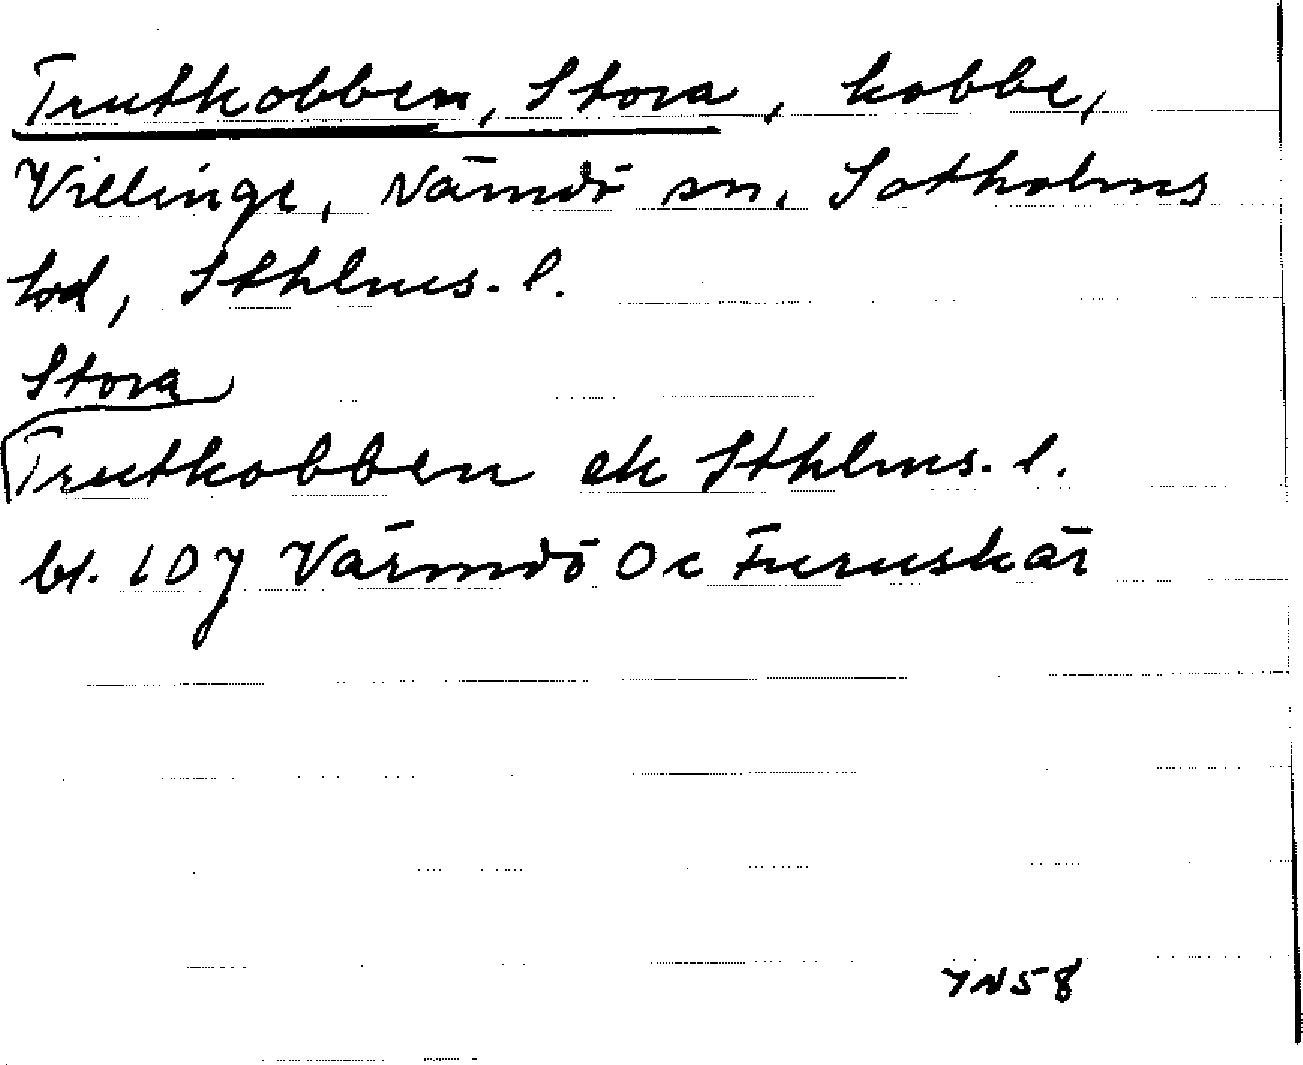 Trutkobben, Stora, kobbe,
Villinge, Nämdö sn, Sotholms
hd, Sthlms. l.
Stora
Trutkobben ek Sthlms. l.
bl. 107 Värmdö Oc Furuskär
YN58